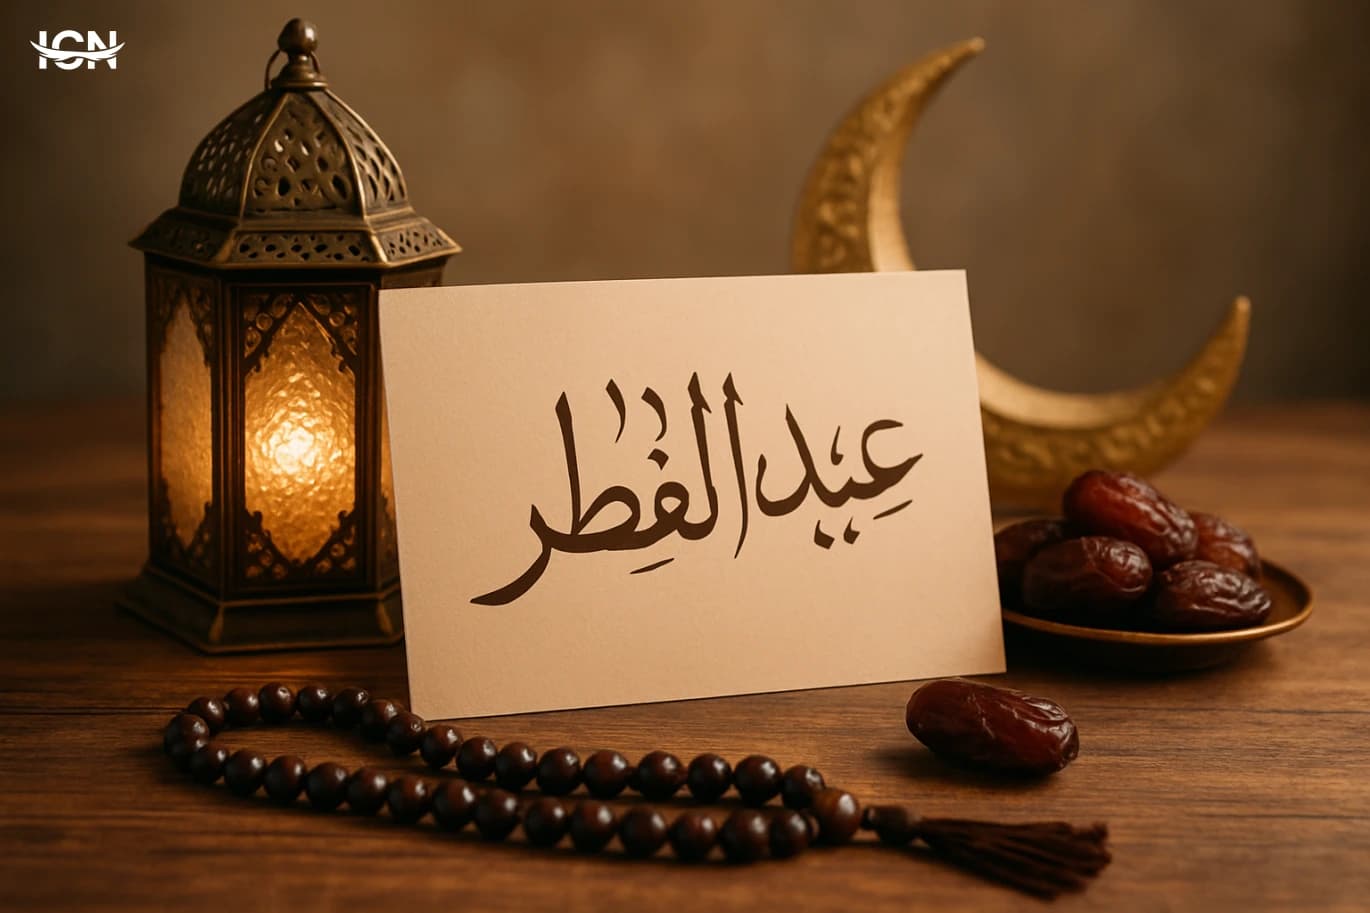 ICN
عيد الفطر